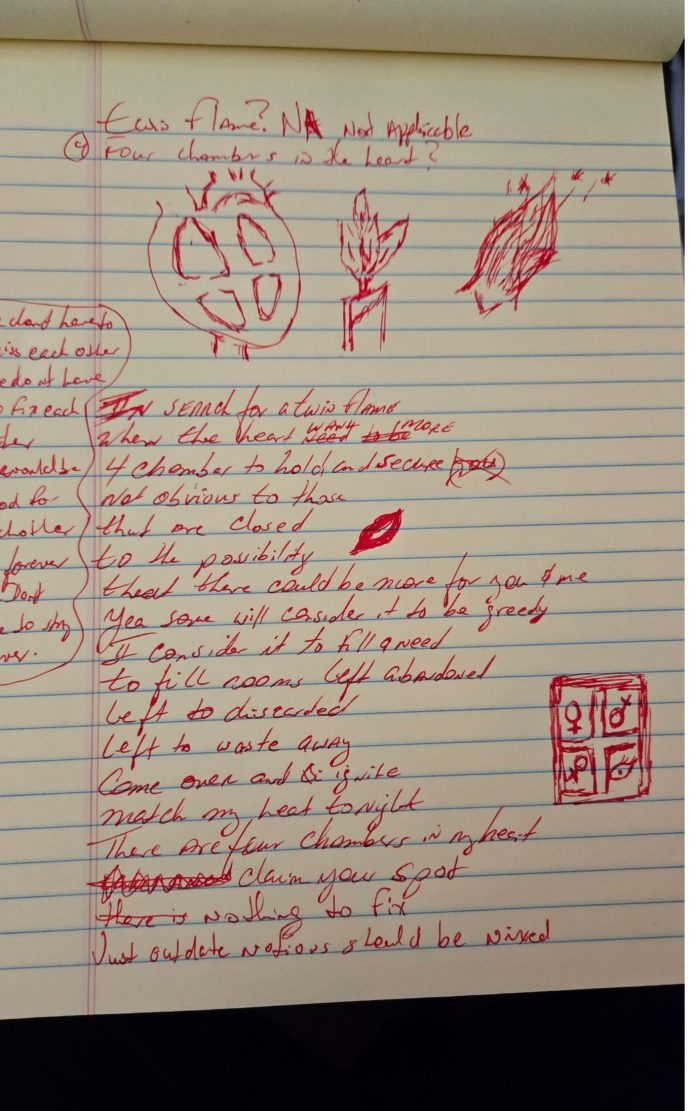 twin flame? NA Not Applicable
④ Four chambers in the heart?
dont have to
iss each other
dont have
fix each
would be
od for
forever
Dont
to stay
ver.
IN SEARCH for a twin flame
When the heart need WANT to be MORE
4 chamber to hold and secure you
Not obvious to those
that are closed
to the possibility
that there could be more for you & me
Yea some will consider it to be greedy
I consider it to fill a need
to fill rooms left abandoned
Left to discarded
Left to waste away
Come over and ignite
match my heat tonight
There are four chambers in my heart
claim your spot
there is Nothing to fix
Just outdate notions should be nixed